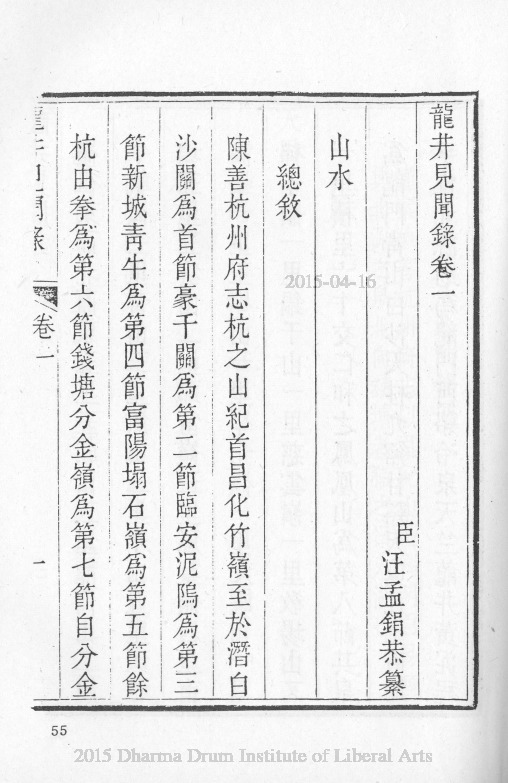 龍井見聞錄卷一
臣汪孟鋗恭纂
山水
總敘
陳善杭州府志杭之山紀首昌化竹嶺至於潛白
沙關爲首節豪千關爲第二節臨安泥隝爲第三
節新城靑牛爲第四節富陽塌石嶺爲第五節餘
杭由拳爲第六節錢塘分金嶺爲第七節自分金
卷一
一
2015-04-16
55
2015 Dharma Drum Institute of Liberal Arts